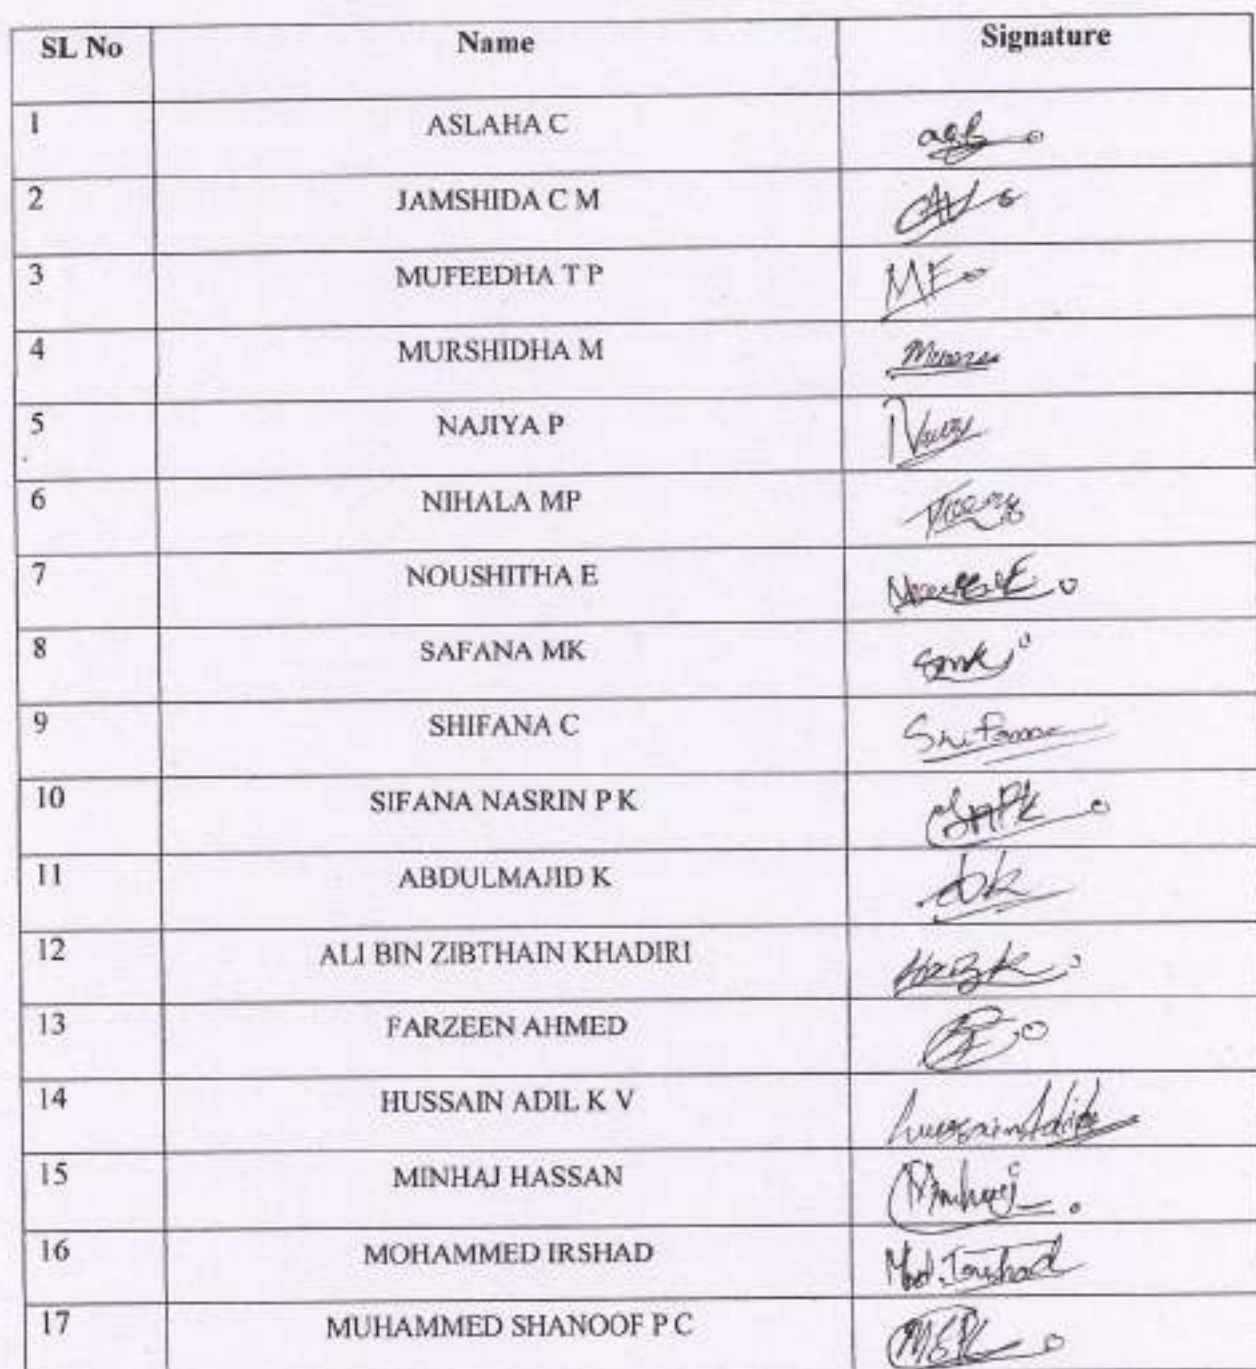 SL No Name Signature
1 ASLAHA C
2 JAMSHIDA C M
3 MUFEEDHA T P MF
4 MURSHIDHA M
5 NAJIYA P
6 NIHALA MP
7 NOUSHITHA E
8 SAFANA MK smk
9 SHIFANA C Shifana
10 SIFANA NASRIN P K
11 ABDULMAJID K
12 ALI BIN ZIBTHAIN KHADIRI
13 FARZEEN AHMED
14 HUSSAIN ADIL K V
15 MINHAJ HASSAN Minhaj
16 MOHAMMED IRSHAD Mod. Irshad
17 MUHAMMED SHANOOF P C